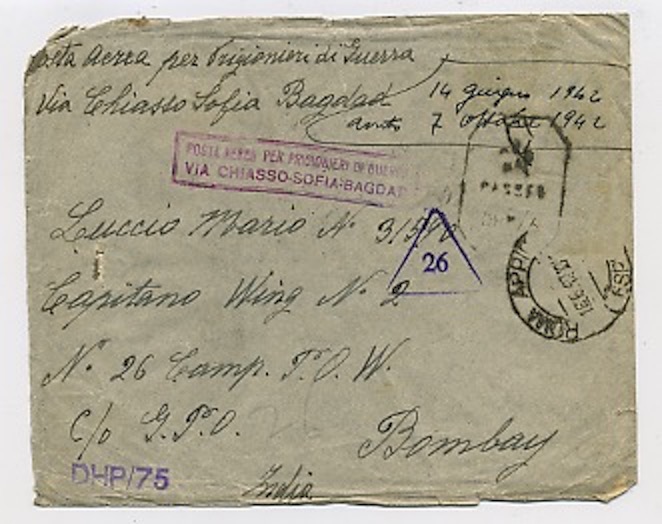 Posta Aerea per Prigionieri di Guerra
Via Chiasso Sofia Bagdad
14 giugno 1942
7 ottobre 1942
POSTA AEREA PER PRIGIONIERI DI GUERRA
VIA CHIASSO-SOFIA-BAGDAT
PASSED
DHP/
Luccio Mario N. 31590
26
ROMA APPIO
Capitano Wing N. 2
N. 26 Camp. P.O.W.
c/o G.P.O.
Bombay
DHP/75
India